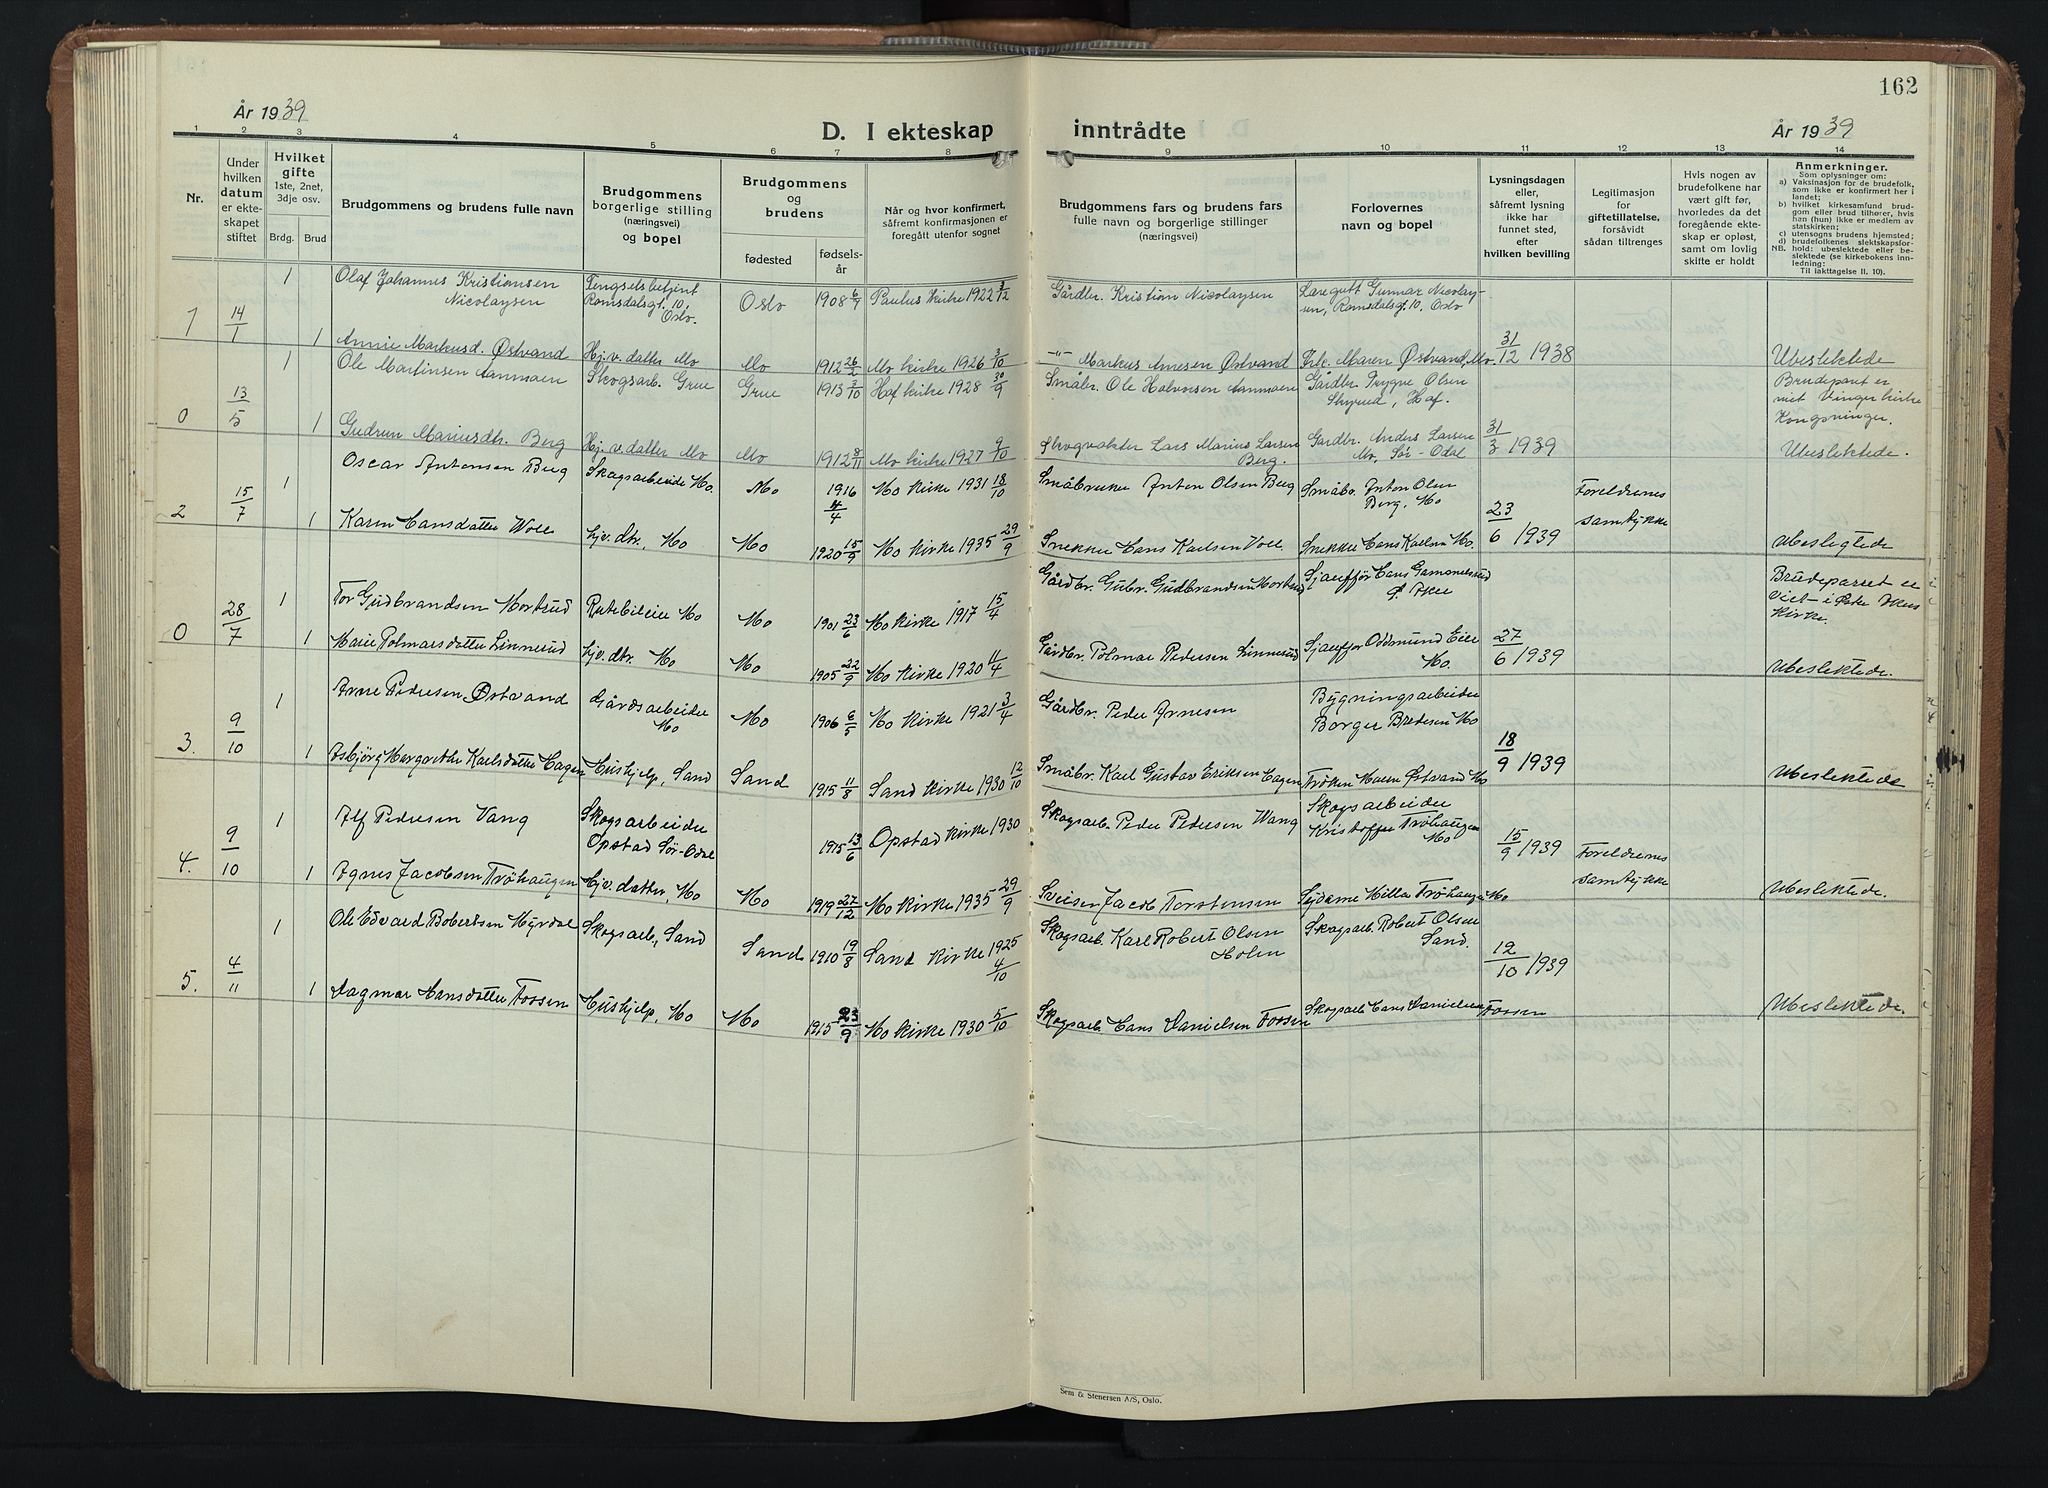 162
År 1939
D. I ekteskap inntrådte
År 1939
1 2 3 4 5 6 7 8 9 10 11 12 13 14
Nr.
Under hvilken datum er ekteskapet stiftet
Hvilket gifte 1ste, 2net, 3dje osv.
Brdg. Brud
Brudgommens og brudens fulle navn
Brudgommens borgerlige stilling (næringsvei) og bopel
Brudgommens og brudens
fødested
fødselsår
Når og hvor konfirmert, såfremt konfirmasjonen er foregått utenfor sognet
Brudgommens fars og brudens fars fulle navn og borgerlige stillinger (næringsvei)
Forlovernes navn og bopel
Lysningsdagen eller, såfremt lysning ikke har funnet sted, efter hvilken bevilling
Legitimasjon for giftetillatelse, forsåvidt sådan tiltrenges
Hvis nogen av brudefolkene har vært gift før, hvorledes da det foregående ekteskap er opløst, samt om lovlig skifte er holdt
Anmerkninger.
Som oplysninger om:
a) Vaksinasjon for de brudefolk, som ikke er konfirmert her i landet;
b) hvilket kirkesamfund brudgom eller brud tilhører, hvis han (hun) ikke er medlem av statskirken;
c) utensogns brudens hjemsted;
d) brudefolkenes slektskapsforhold: ubeslektede eller beslektede (se kirkebokens innledning:
NB.
Til iakttagelse II, 10).
1 14/1 1 Olaf Johannes Kristiansen Nicolaysen Fengselsbetjent Romsdalsgt. 10, Oslo. Oslo 1908 6/7 Paulus kirke 1922 3/12 Gårdbr. Kristian Nicolaysen Læregutt Gunnar Nicolaysen, Romsdalsgt. 10, Oslo
1 Annie Markusd. Østvand Hj.v. datter Mo Mo 1912 26/2 Mo kirke 1926 3/10 -"- Markus Arnesen Østvand Frk. Maren Østvand, Mo. 31/12 1938 Ubeslektede
0 13/5 1 Ole Martinsen Aanmoen Skogsarb. Grue Grue 1913 3/10 Hof kirke 1928 30/9 Småbr. Ole Halvorsen Aanmoen Gårdbr. Trygve Olsen Skyrud, Hof. Brudeparet er viet Vinger kirke Kongsvinger.
1 Gudrun Mariusdtr. Berg Hj.v. datter Mo Mo 1912 8/11 Mo kirke 1927 9/10 Skogvokter Lars Marius Larsen Berg. Gardbr. Anders Larsen Mo, Sør-Odal 31/3 1939 Ubeslektede.
2 15/7 1 Oscar Antonsen Berg Skogsarbeide Mo. Mo 1916 4/4 Mo Kirke 1931 18/10 Småbruker Anton Olsen Berg Småbr. Anton Olsen Berg, Mo Foreldrenes samtykke
1 Karin Hansdatter Woll Hjv. dtr., Mo Mo 1920 15/9 Mo Kirke 1935 29/9 Snekker Hans Karlsen Voll. Snekker Hans Karlsen Mo. 23/6 1939 Ubeslegtede
0 28/7 1 Tor Gudbrandsen Mortsud Rutebileier Mo Mo 1901 23/6 Mo Kirke 1917 15/4 Gårdbr. Gubr. Gudbrandsen Mortsud Sjauffør Hans Ø. Aker Brudeparret er viet i Østre Akers Kirke.
1 Marie Polmarsdatter Linnerud Hjv. dtr. Mo Mo 1905 22/9 Mo Kirke 1920 11/4 Gårdbr. Polmar Pedersen Linnerud Sjauffør Oddmund Eier Mo. 27/6 1939 Ubeslektede.
3. 9/10 1 Arne Pedersen Østvand Gårdsarbeider Mo Mo 1906 6/5 Mo Kirke 1921 3/4 Gårdbr. Peder Arnesen Bygningsarbeider Borger Bredesen Mo
1 Asbjørg Margrethe Karlsdatter Hagen Hushjelp, Sand Sand 1915 11/8 Sand Kirke 1930 12/10 Småbr. Karl Gustav Eriksen Hagen Frøken Maren Østvand Mo 18/9 1939 Ubeslektede
4. 9/10 1 Alf Pedersen Vang Skogsarbeider Opstad Sør-Odal 1915 13/6 Opstad Kirke 1930 Skogsarb. Peder Pedersen Wang Skogsarbeider Kristoffer Trøhaugen Mo 15/9 1939 Foreldrenes samtykke
1 Agnes Jacobsen Trøhaugen Hjv. datter, Mo Mo 1919 27/12 Mo Kirke 1935 29/9 Sveisen Jacob Torstensen Sydame Hilla Trøhaugen Mo Ubeslektede.
5. 4/11 1 Ole Edvard Robertsen Myrdal Skogsarb., Sand Sand 1910 19/8 Sand Kirke 1925 4/10 Skogsarb. Karl Robert Olsen Holen Skogsarb. Robert Olsen Sand. 12/10 1939
1 Dagmar Hansdatter Fossen Hushjelp, Mo Mo 1915 23/9 Mo Kirke 1930 5/10 Skogsarb. Hans Danielsen Fossen Skogsarb Hans Danielsen Fossen Ubeslektede.
Sem & Stenersen A/S, Oslo.